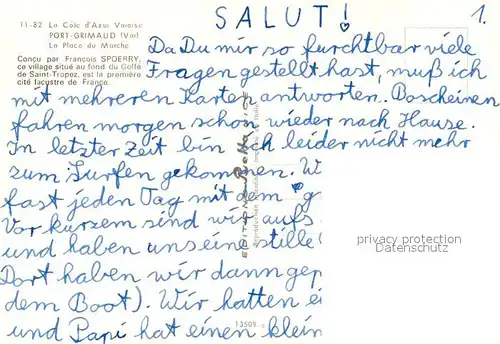 SALUT!
1.
11-82 La Côte d'Azur Varoise
PORT-GRIMAUD (Var)
La Place du Marché
Conçu par François SPOERRY,
ce village situé au fond du Golfe
de Saint-Tropez, est la première
cité lacustre de France.
Da Du mir so furchtbar viele
Fragen gestellt hast, muß ich
mit mehreren Karten antworten.
fahren morgen schon wieder nach Hause.
In letzter Zeit bin ich leider nicht mehr
zum Surfen gekommen. W
fast jeden Tag mit dem g
Vor kurzem sind wir aufs
und haben uns eine stille
Dort haben wir dann gep
dem Boot). Wir hatten ei
und Papi hat einen klein
privacy protection
Datenschutz
EDITIONS Rella
13509